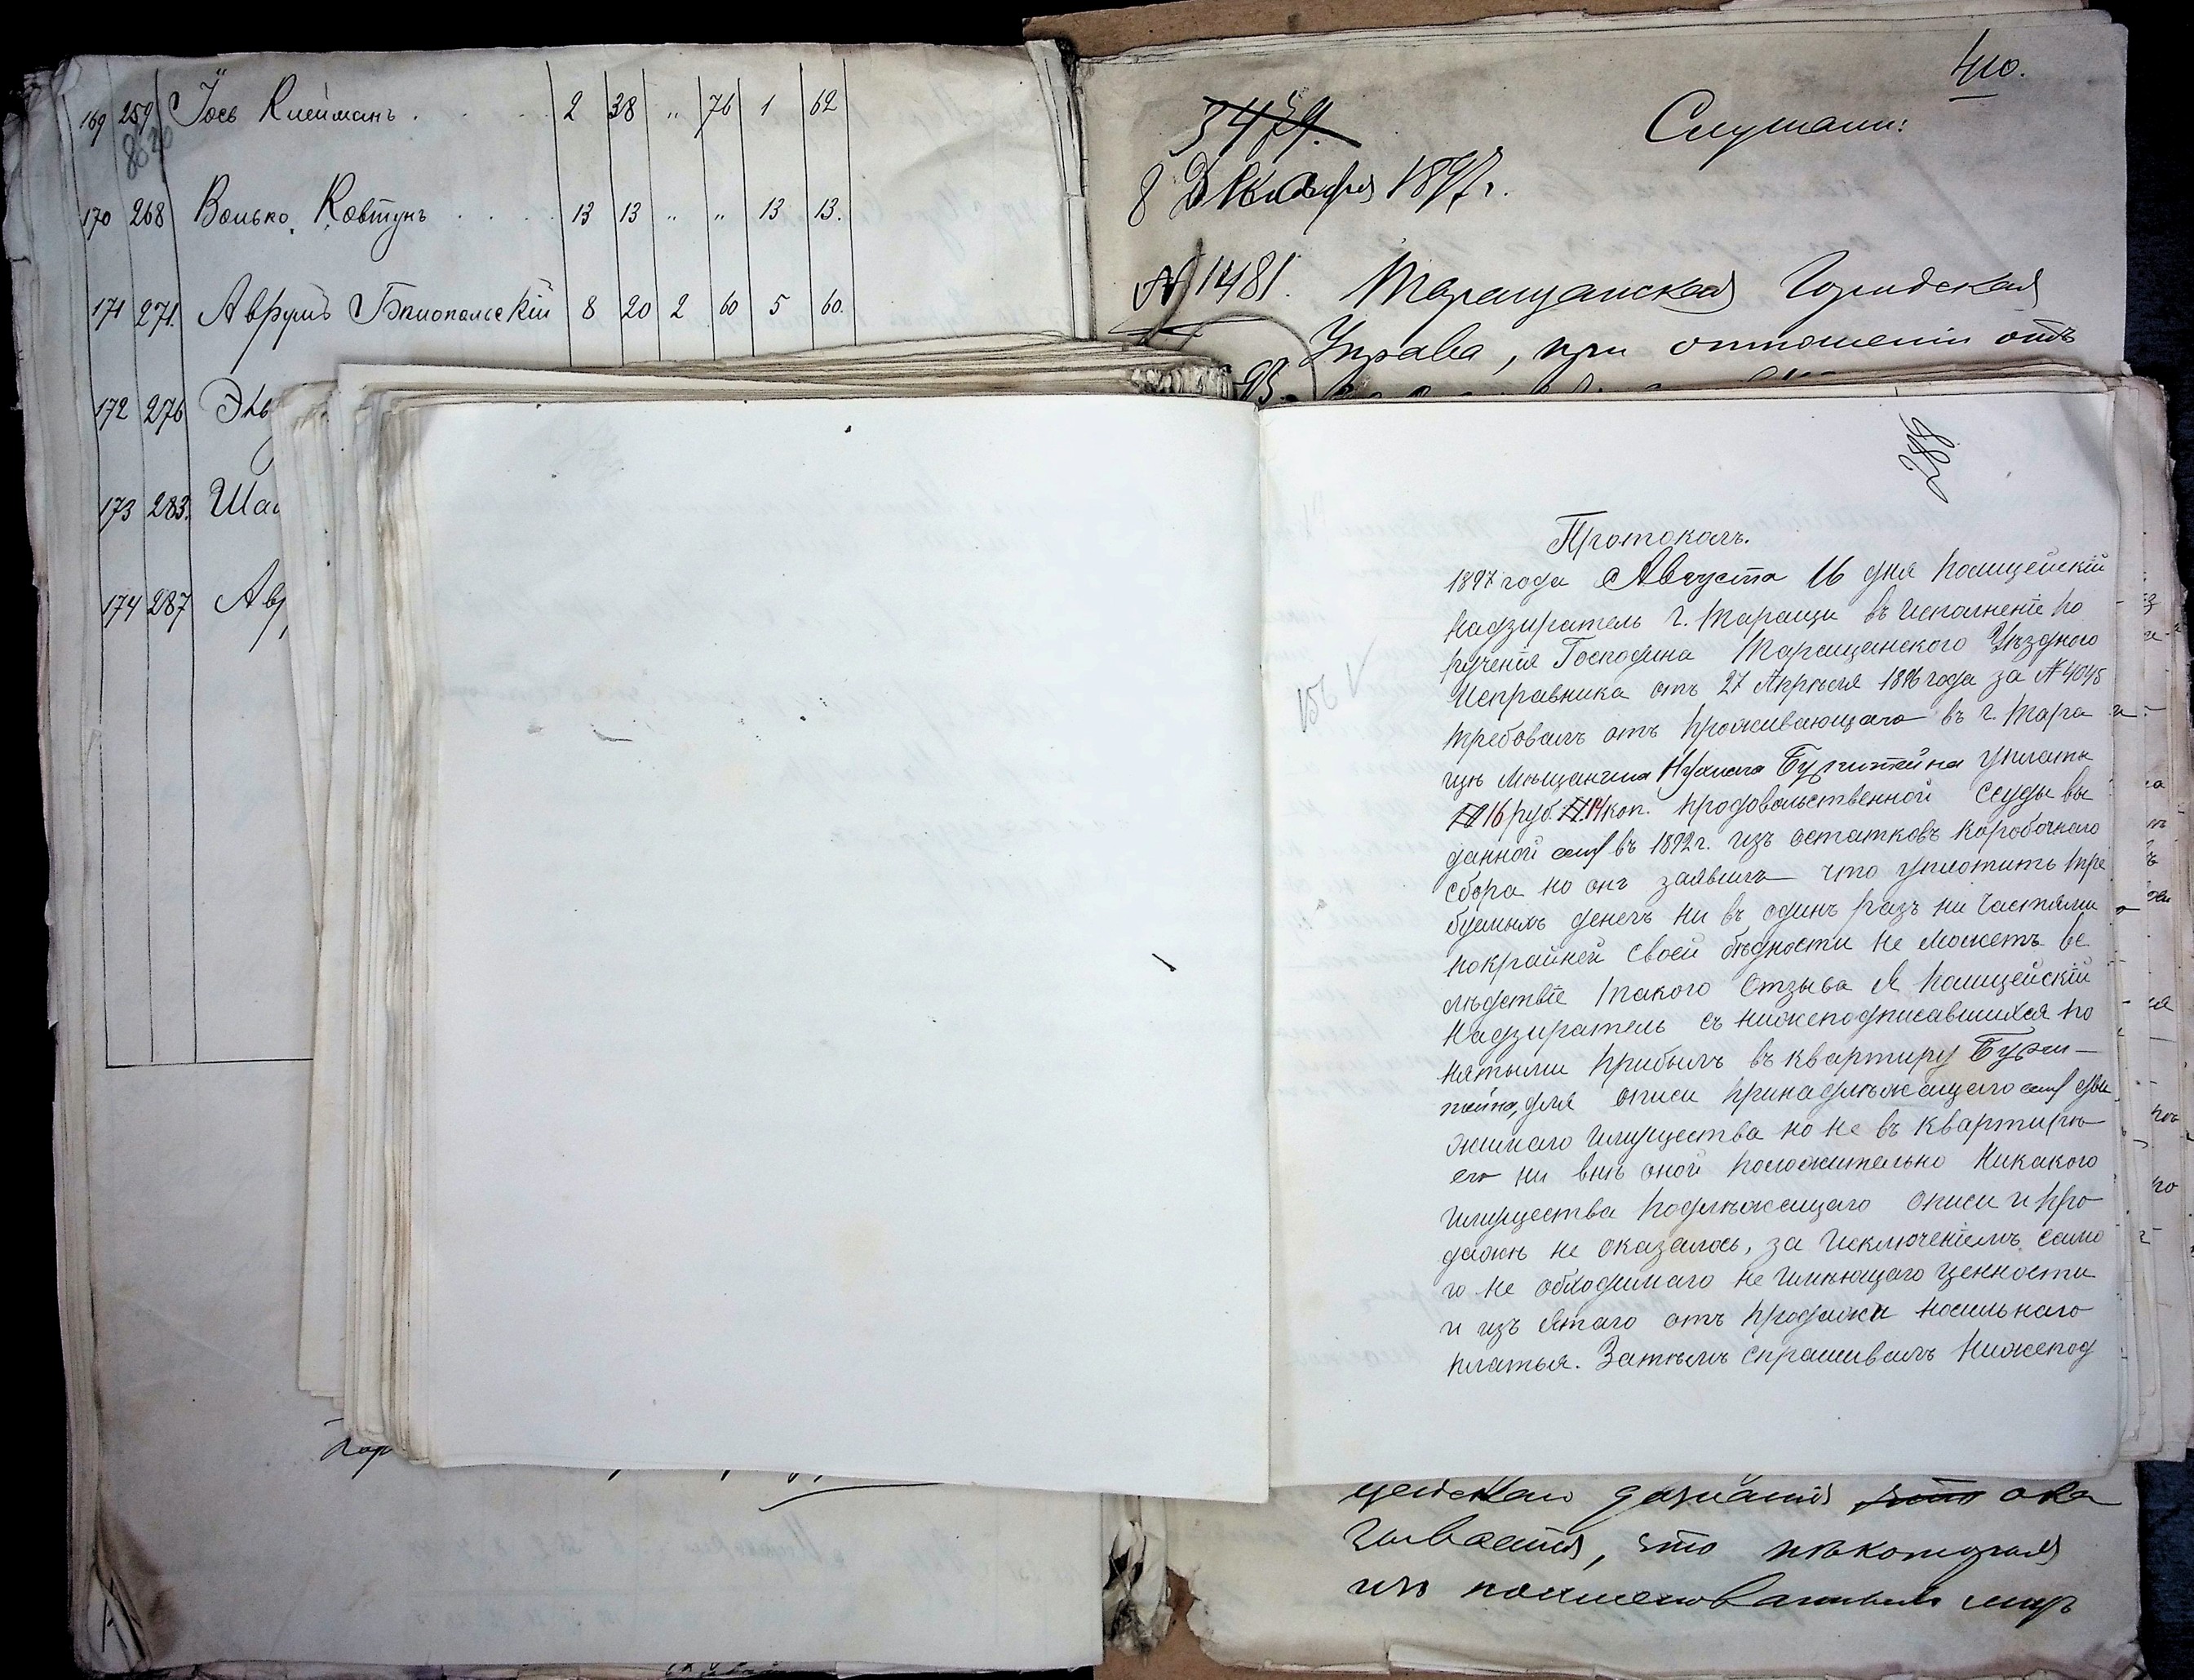 169 259 Іось Клейманъ . . . . 2 38 " 76 1 62
8620
170 268 Волько Ковтунъ . . . . 13 13 " " 13 13.
171 271. Аврумъ Бѣлопольскій 8 20 2 60 5 60.
172 276
173 283.
174 287
410.
3479.
Слушали:
8 Декабря 1897 г.
№ 1481. Таращанская Городская
Управа, при отношеніи отъ
93
288
Протоколъ.
1897 года Августа 16 дня Полицейскій
Надзиратель г. Таращи въ исполненіе по
рученія Господина Таращанского Уѣздного
Исправника отъ 27 Апрѣля 1896 года за № 4045
требовалъ отъ проживающаго въ г. Тара
щѣ мѣщанина Нухима Бурштейна уплаты
16 руб. 14 коп. продовольственной ссуды вы
данной ему въ 1892 г. изъ остатковъ коробочного
сбора но онъ заявилъ что уплотить тре
буемыхъ денегъ ни въ одинъ разъ ни частями
покрайней своей бѣдности не можетъ вс
лѣдствіе такого отзыва Я Полицейскій
Надзиратель съ нижеподписавшимися по
нятыми прибылъ въ квартиру Бурш-
тейна, для описи принадлѣжащего ему дви
жимаго имущества но не въ квартирѣ
его ни внѣ оной положительно никакого
имущества подлѣжащаго описи и про
дажѣ не оказалось, за исключеніемъ само
го не обходимаго не имѣющаго ценности
и изъ ятаго отъ продажи носильнаго
платья. Затѣмъ спрашивалъ нижепод
156 V
цейскаго дознанія что ока
зывается, что нѣкоторыя
изъ поименованныхъ лицъ